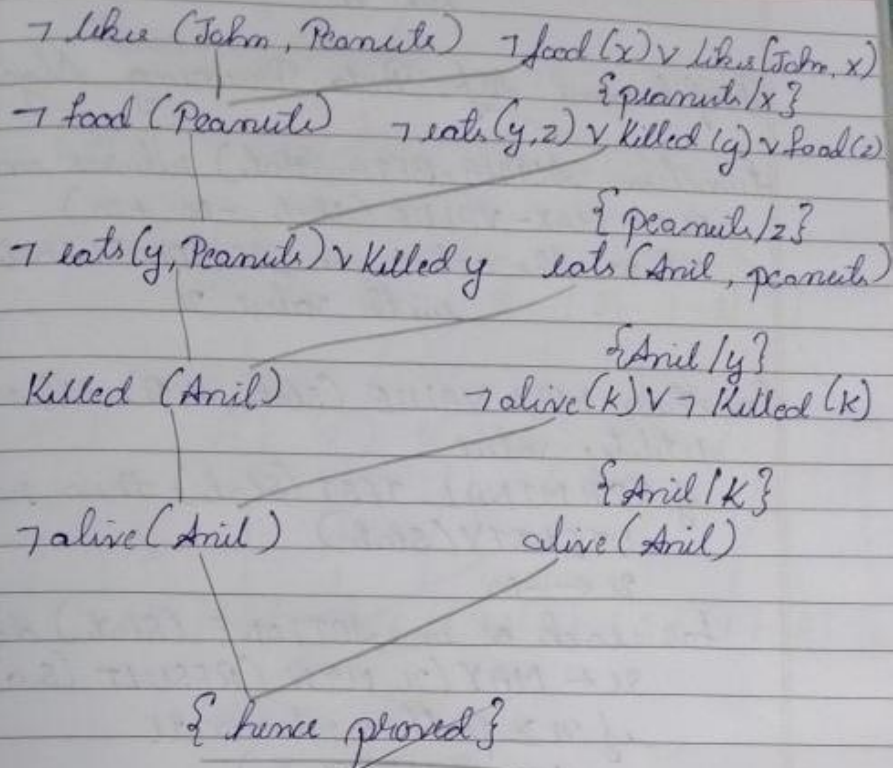 ¬ likes (John, Peanuts) ¬food(x) v likes(John, x)
{peanuts/x}
¬ food (Peanuts) ¬eats(y,z) v Killed (y) v food(z)
{peanuts/z}
¬ eats(y, Peanuts) v Killed y eats (Anil, peanuts)
{Anil/y}
Killed (Anil) ¬alive(k) V ¬ Killed(k)
{Anil/K}
¬alive(Anil) alive(Anil)
{ hence proved}